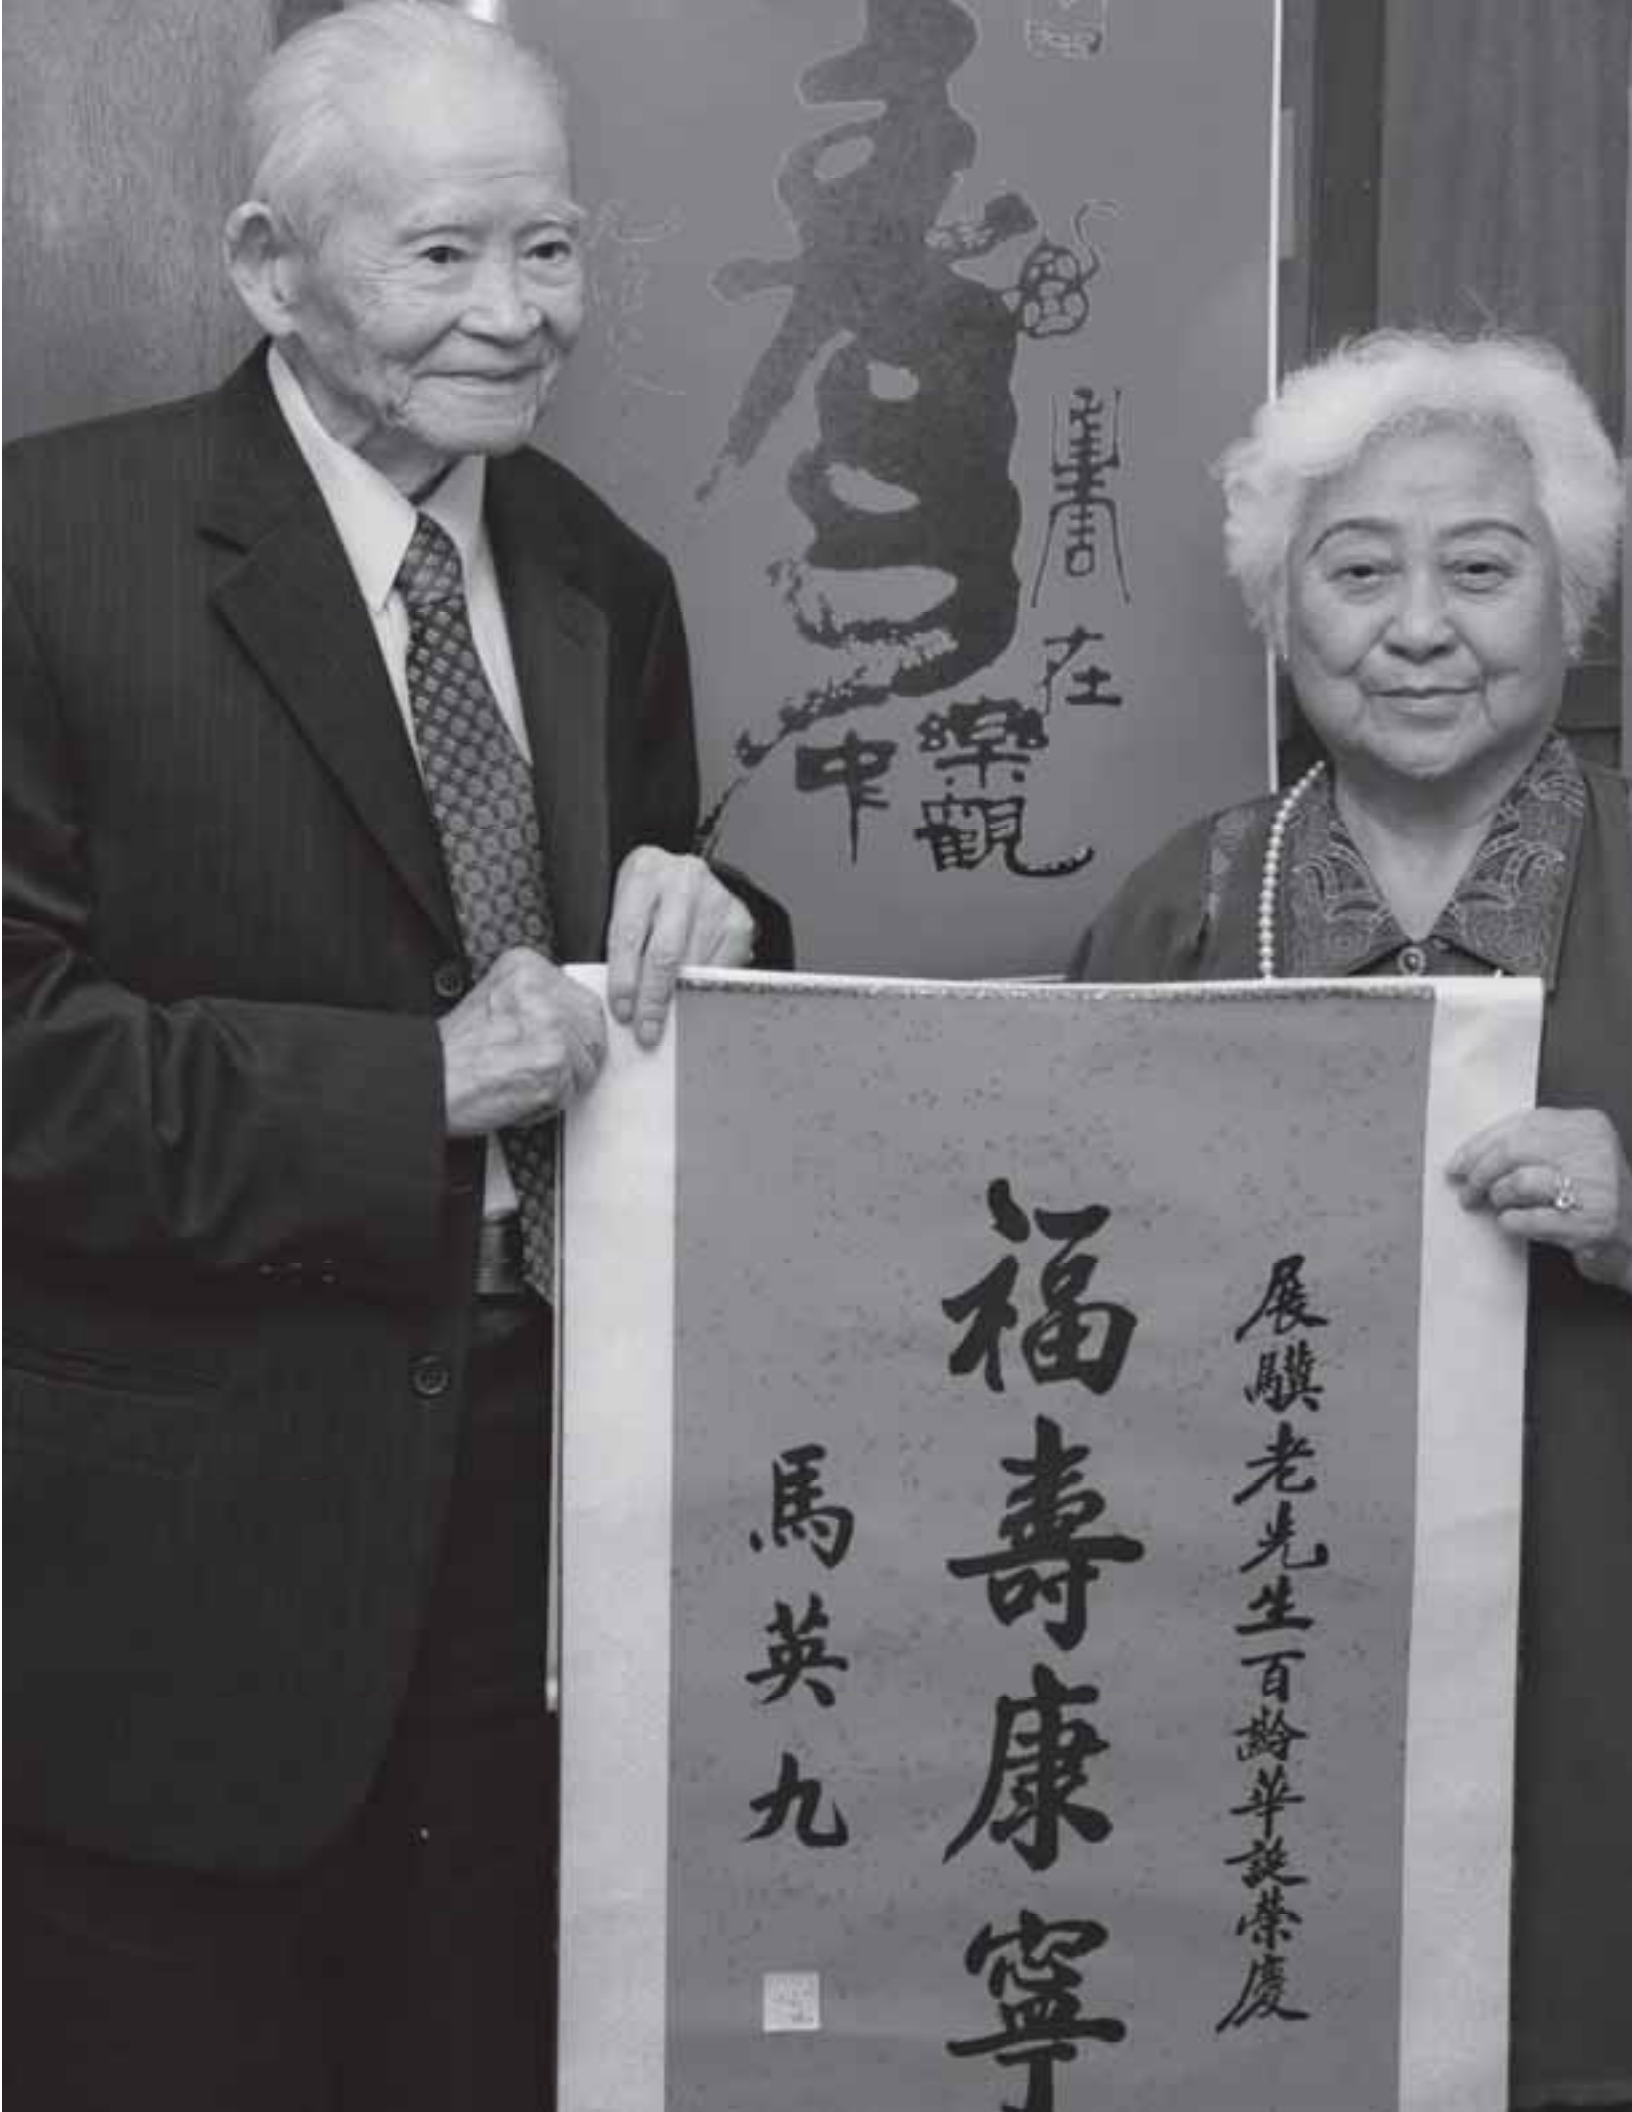 壽在
樂觀
中
展驥老先生百齡華誕榮慶
福壽康寧
馬英九